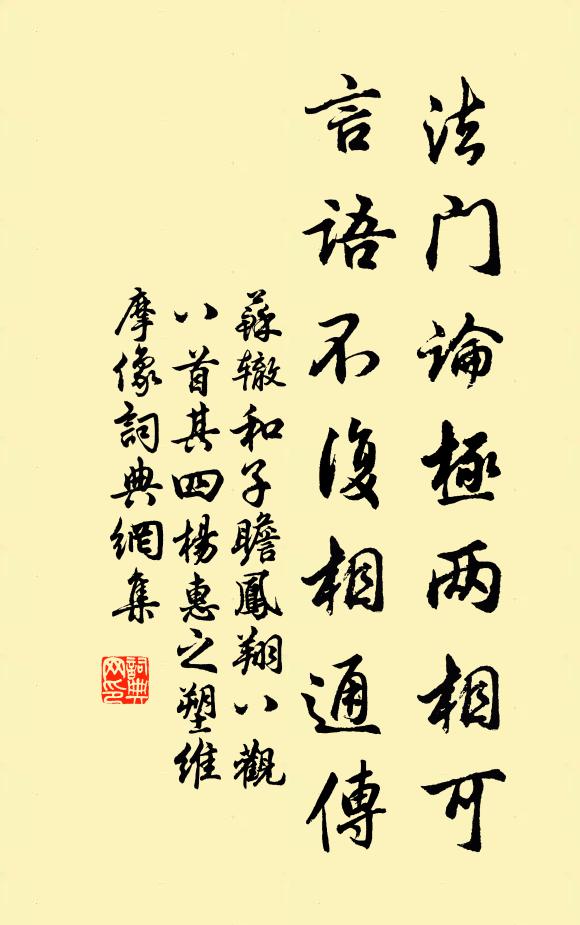 法门論極两相可
言語不復相通傳
蘇辙和子瞻鳳翔八觀
八首其四楊惠之塑維
摩像詞典網集
詞典
网印